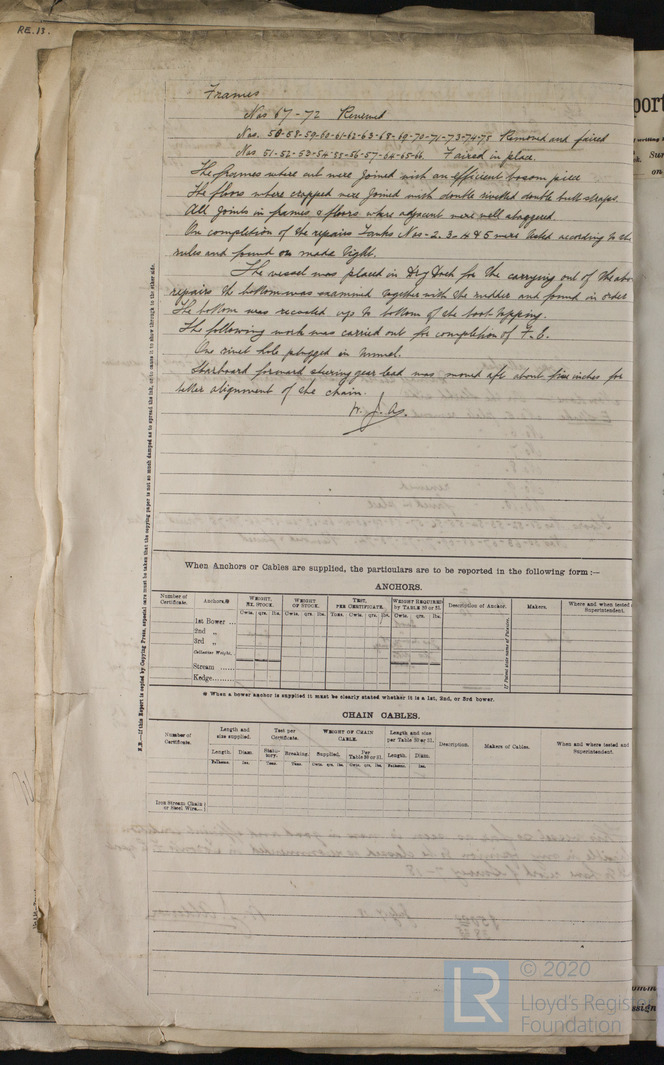 RE.13.
Frames
Nos 67-72 Renewed
Nos. 50-58-59-60-61-62-63-68-69-70-71-73-74-75 Removed and faired
Nos 51-52-53-54-55-56-57-64-65-66. Faired in place.
The frames where cut were joined with an efficient bosom piece
The floors where cropped were joined with double rivetted double butt straps.
All joints in frames & floors where adjacent were well staggered
On completion of the repairs Tanks Nos-2.3.4 & 5 were tested according to the
rules and found or made tight.
The vessel was placed in Dry Dock for the carrying out of the abo
repairs the bottom was examined together with the rudder and found in order
The bottom was recoated up to bottom of the boot topping.
The following work was carried out for completion of F.E.
One rivet hole plugged in tunnel.
Starboard forward steering gear lead was moved aft about five inches for
better alignment of the chain.
N.B.—If this Report is copied by Copying Press, especial care must be taken that the copying paper is not so much damped as to spread the ink, or to cause it to show through to the other side.
When Anchors or Cables are supplied, the particulars are to be reported in the following form :—
ANCHORS.
Number of Certificate. Anchors.* WEIGHT, EX. STOCK. WEIGHT OF STOCK. TEST, PER CERTIFICATE. WEIGHT REQUIRED by TABLE 30 or 31. Description of Anchor. Makers. Where and when tested Superintendent.
Cwts. qrs. lbs. Cwts. qrs. lbs. Tons. Cwts. qrs. lbs. Cwts. qrs. lbs.
1st Bower ...
2nd „
3rd „
Collective Weight.
Stream ......
Kedge.........
* When a bower anchor is supplied it must be clearly stated whether it is a 1st, 2nd, or 3rd bower.
CHAIN CABLES.
Number of Certificate. Length and size supplied. Test per Certificate. WEIGHT OF CHAIN CABLE. Length and size per Table 30 or 31. Description. Makers of Cables. When and where tested and Superintendent.
Length. Diam. Statutory. Breaking. Supplied. Per Table 30 or 31. Length. Diam.
Fathoms. Ins. Tons. Tons. Cwts. qrs. lbs. Cwts. qrs. lbs. Fathoms. Ins.
Iron Stream Chain or Steel Wire...
LR
© 2020
Lloyd's Register
Foundation